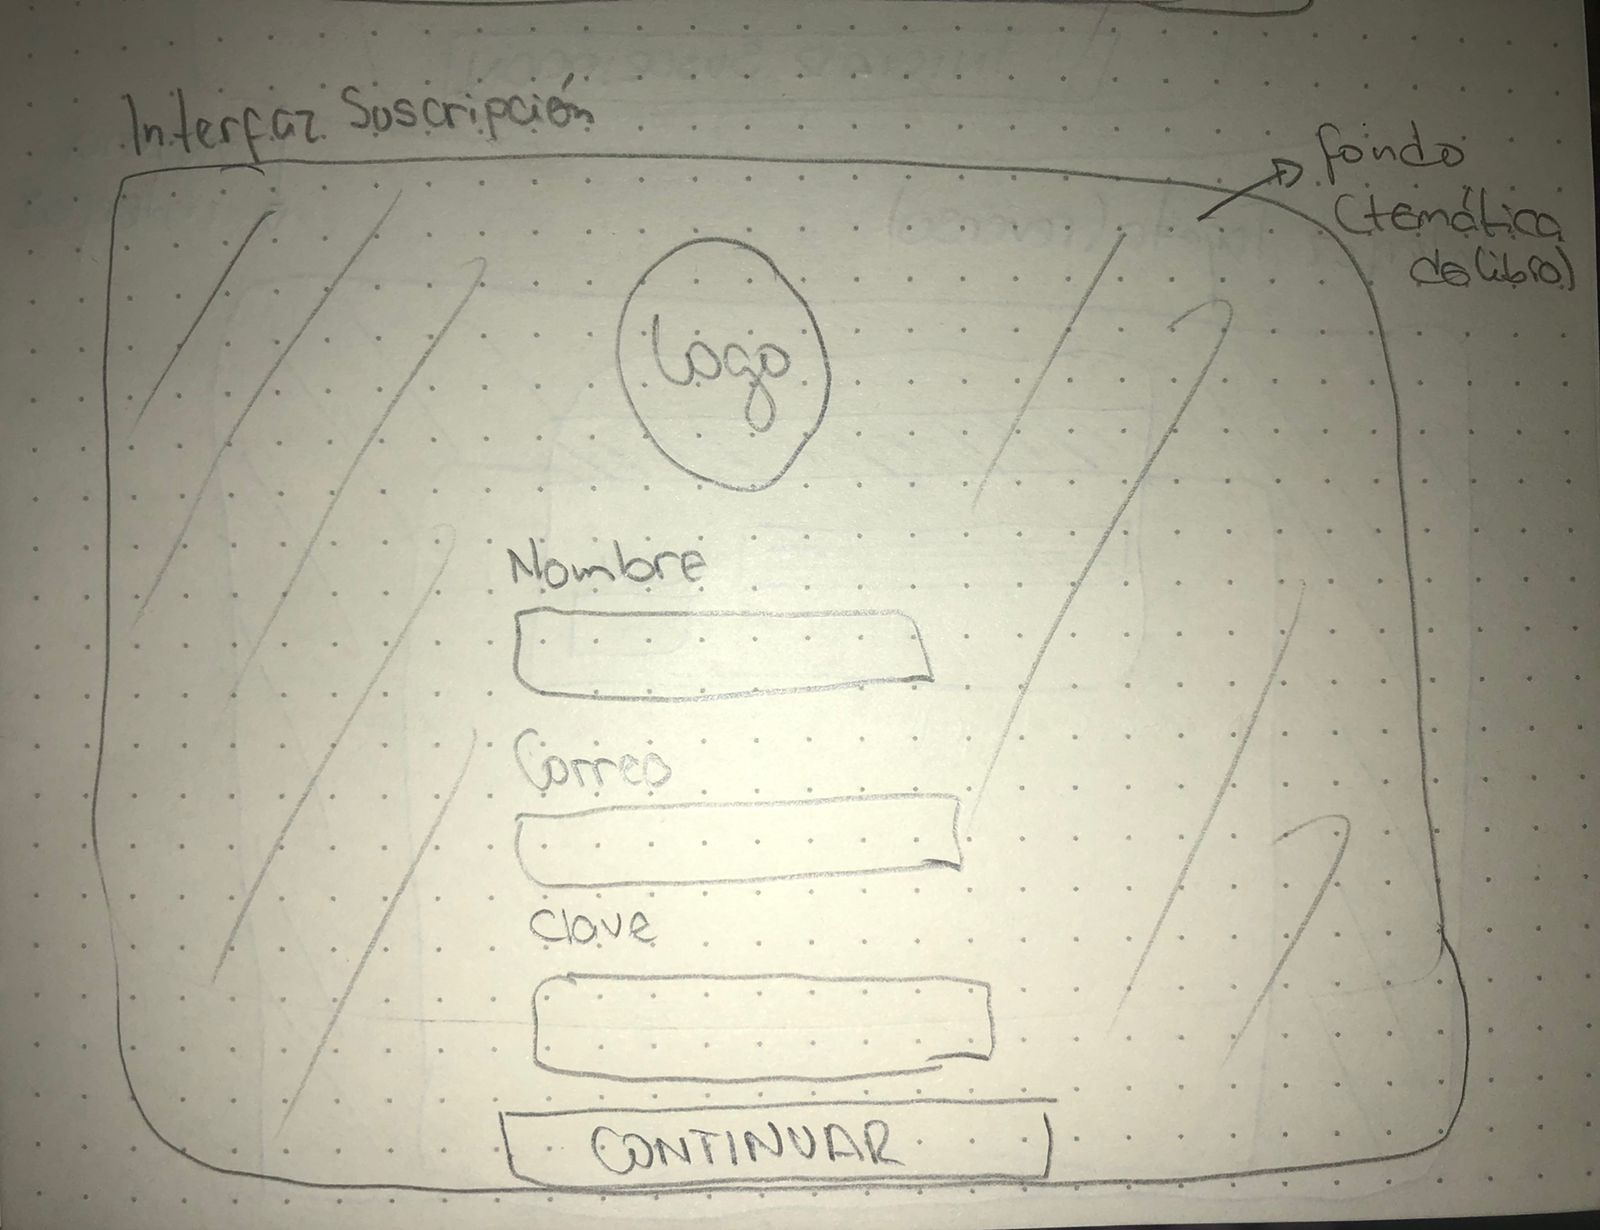 Interfaz Suscripción
fondo
(temática
de libro)
Logo
Nombre
Correo
Clave
CONTINUAR